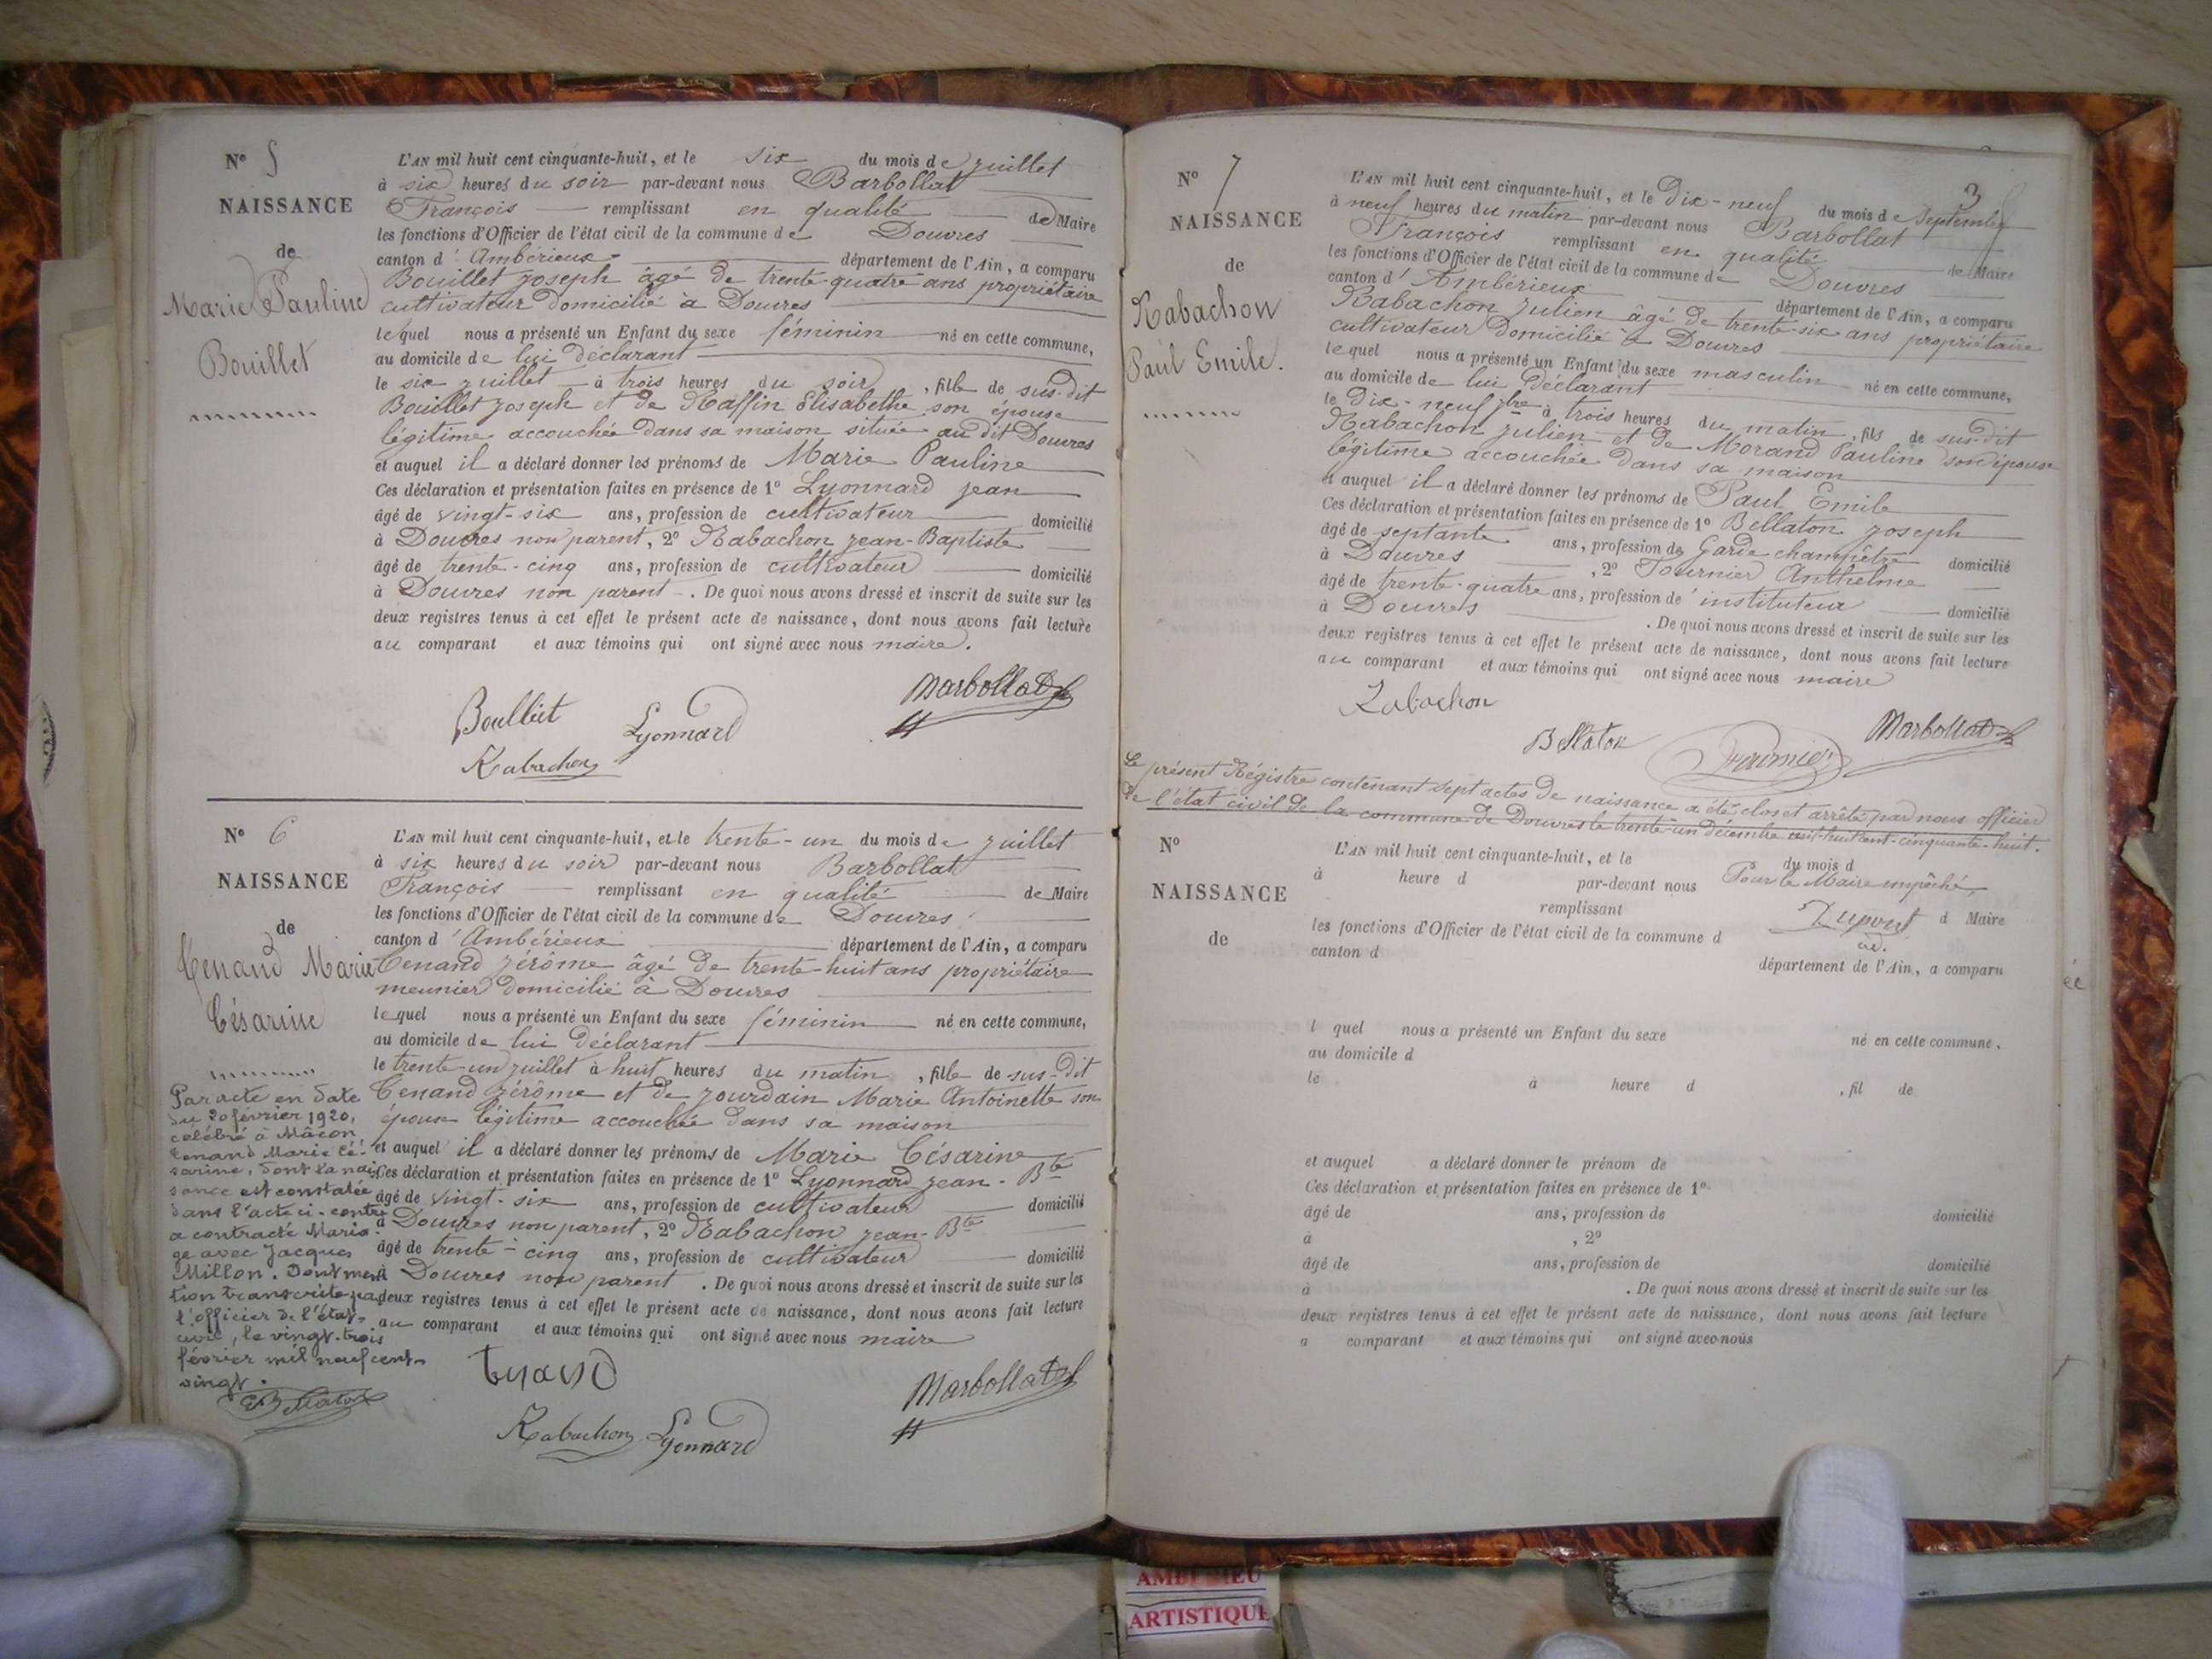 N° 5
NAISSANCE
de
Marie Pauline
Bouillet
L'AN mil huit cent cinquante-huit, et le six du mois de juillet
à six heures du soir par-devant nous Barbollat
François remplissant en qualité de Maire
les fonctions d'Officier de l'état civil de la commune de Douvres
canton d'Ambérieux département de l'Ain, a comparu
Bouillet joseph âgé de trente-quatre ans propriétaire
cultivateur domicilié à Douvres
lequel nous a présenté un Enfant du sexe féminin né en cette commune,
au domicile de lui déclarant
le six juillet à trois heures du soir, fille de sus-dit
Bouillet joseph et de Raffin Elisabethe son épouse
légitime accouchée dans sa maison située au dit Douvres
et auquel il a déclaré donner les prénoms de Marie Pauline
Ces déclaration et présentation faites en présence de 1° Lyonnard jean
âgé de vingt-six ans, profession de cultivateur domicilié
à Douvres non parent, 2° Rabachon jean-Baptiste
âgé de trente-cinq ans, profession de cultivateur domicilié
à Douvres non parent. De quoi nous avons dressé et inscrit de suite sur les
deux registres tenus à cet effet le présent acte de naissance, dont nous avons fait lecture
au comparant et aux témoins qui ont signé avec nous maire.
Bouillet Lyonnard Barbollat
Rabachon
N° 6
NAISSANCE
de
Tenand Marie
Césarine
L'AN mil huit cent cinquante-huit, et le trente-un du mois de juillet
à six heures du soir par-devant nous Barbollat
François remplissant en qualité de Maire
les fonctions d'Officier de l'état civil de la commune de Douvres
canton d'Ambérieux département de l'Ain, a comparu
Tenand jérôme âgé de trente-huit ans propriétaire
meunier domicilié à Douvres
lequel nous a présenté un Enfant du sexe féminin né en cette commune,
au domicile de lui déclarant
le trente-un juillet à huit heures du matin, fille de sus-dit
Tenand jérôme et de jourdain Marie Antoinette son
épouse légitime accouchée dans sa maison
et auquel il a déclaré donner les prénoms de Marie Césarine
Ces déclaration et présentation faites en présence de 1° Lyonnard jean-Bte
âgé de vingt-six ans, profession de cultivateur domicilié
à Douvres non parent, 2° Rabachon jean-Bte
âgé de trente-cinq ans, profession de cultivateur domicilié
à Douvres non parent. De quoi nous avons dressé et inscrit de suite sur les
deux registres tenus à cet effet le présent acte de naissance, dont nous avons fait lecture
au comparant et aux témoins qui ont signé avec nous maire
Tenand Barbollat
Rabachon Lyonnard
Par acte en date
du 20 février 1920,
célébré à Mâcon
Tenand Marie Cé-
sarine, dont la nais-
sance est constatée
dans l'acte ci-contre
a contracté Maria-
ge avec Jacques
Millon. Dont men-
tion transcrite par
l'officier de l'état-
civil, le vingt-trois
février mil neuf cent-
vingt.
Bellaton
3
N° 7
NAISSANCE
de
Rabachon
Paul Emile.
L'AN mil huit cent cinquante-huit, et le Dix-neuf du mois de Septembre
à neuf heures du matin par-devant nous Barbollat
François remplissant en qualité de Maire
les fonctions d'Officier de l'état civil de la commune de Douvres
canton d'Ambérieux département de l'Ain, a comparu
Rabachon julien âgé de trente-six ans propriétaire
cultivateur domicilié à Douvres
lequel nous a présenté un Enfant du sexe masculin né en cette commune,
au domicile de lui déclarant
le Dix-neuf 7bre à trois heures du matin, fils de sus-dit
Rabachon julien et de Morand Pauline son épouse
légitime accouchée dans sa maison
et auquel il a déclaré donner les prénoms de Paul Emile
Ces déclaration et présentation faites en présence de 1° Bellaton joseph
âgé de septante ans, profession de Garde champêtre domicilié
à Douvres, 2° Fournier Anthelme
âgé de trente-quatre ans, profession d'instituteur domicilié
à Douvres. De quoi nous avons dressé et inscrit de suite sur les
deux registres tenus à cet effet le présent acte de naissance, dont nous avons fait lecture
au comparant et aux témoins qui ont signé avec nous maire
Rabachon
Bellaton Fournier Barbollat
Le présent Régistre contenant sept actes de naissance a été clos et arrêté par nous officier
de l'état civil de la commune de Douvres le trente-un décembre mil-huit cent-cinquante-huit.
Pour le Maire empêché,
Dupont
ad.
N°
NAISSANCE
de
L'AN mil huit cent cinquante-huit, et le du mois d
à heure d par-devant nous
remplissant d Maire
les fonctions d'Officier de l'état civil de la commune d
canton d département de l'Ain, a comparu
l quel nous a présenté un Enfant du sexe né en cette commune,
au domicile d
le à heure d , fil de
et auquel a déclaré donner le prénom de
Ces déclaration et présentation faites en présence de 1°
âgé de ans, profession de domicilié
à , 2°
âgé de ans, profession de domicilié
à . De quoi nous avons dressé et inscrit de suite sur les
deux registres tenus à cet effet le présent acte de naissance, dont nous avons fait lecture
a comparant et aux témoins qui ont signé avec nous
ARTISTIQUE